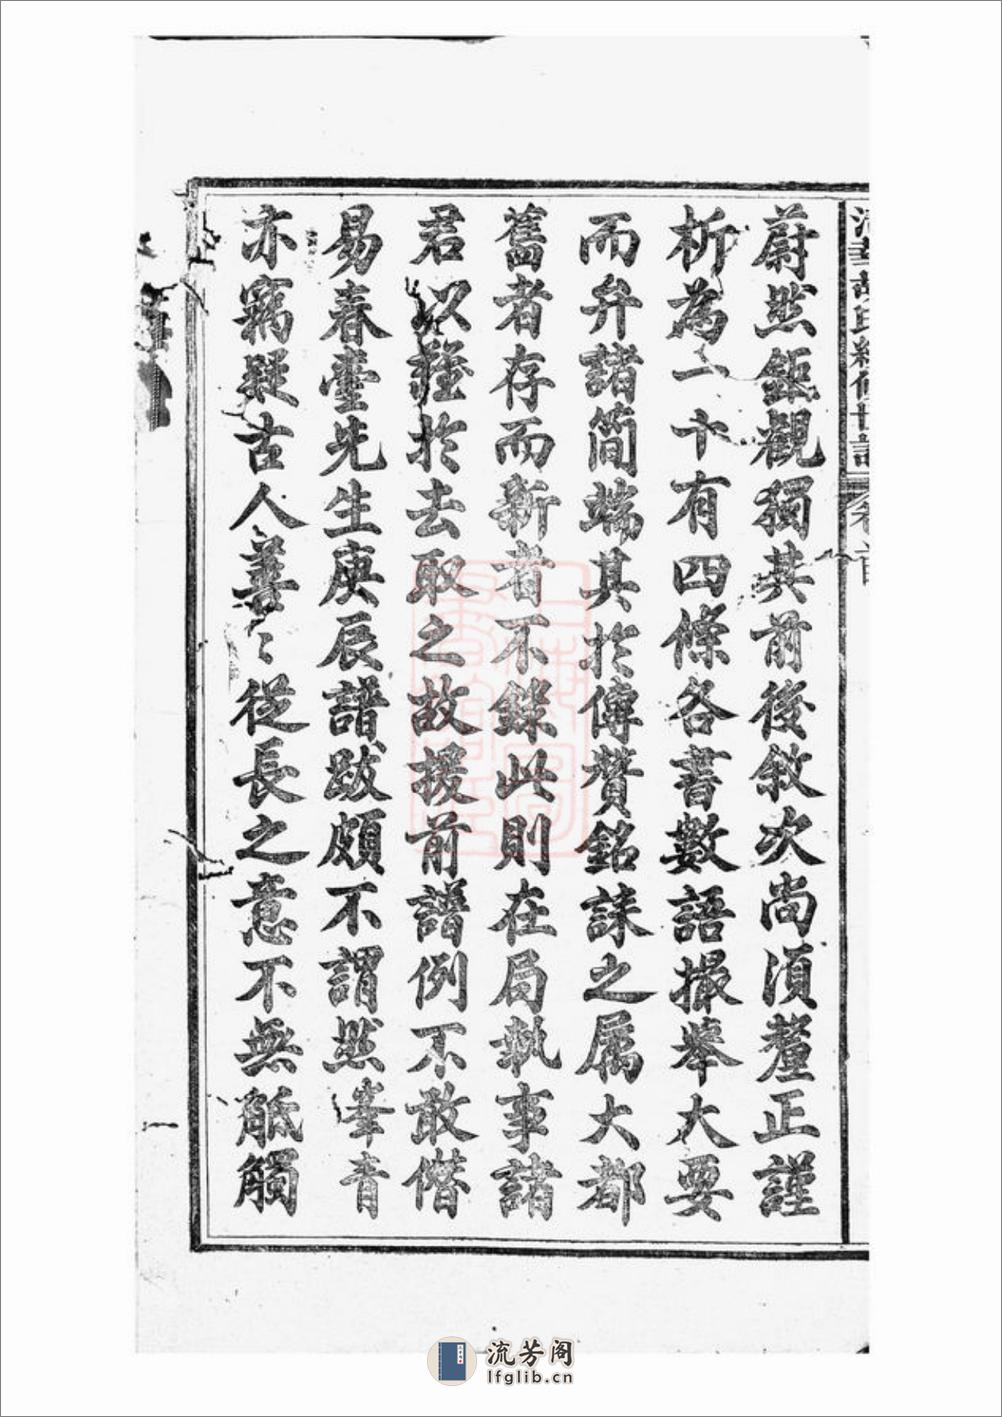 蔚然鉅觀獨其前後敘次尚須釐正謹
析為一十有四條各書數語撮舉大要
而弁諸簡端其於傳贊銘誄之屬大都
舊者存而新者不錄此則在局執事諸
君以謹於去取之故援前譜例不敢僭
易春臺先生庚辰譜跋頗不謂然峯青
亦竊疑古人善〻從長之意不無觝觸
胡氏續修世譜
流芳阁
lfglib.cn